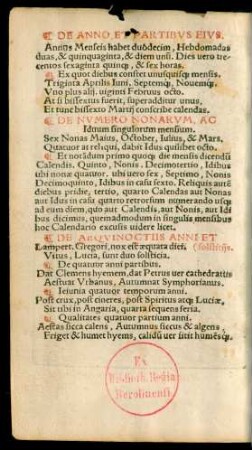 DE ANNO ET PARTIBVS EIVS.
Annus Mensis habet duodecim, Hebdomadas
duas, & quinquaginta, & diem unũ. Dies uero tre
centos sexaginta quinq;, & sex horas.
Ex quot diebus constet unusquisq; mensis.
Triginta Aprilis Iuni, Septemq;, Nouemq;.
Vno plus alij. uiginti Februus octo.
At si bissextus fuerit, superadditur unus,
Et tunc bissexto Martij conscribe calendas.
DE NVMERO NONARVM, AC
Iduum singulorum mensium.
Sex Nonas Maius, October, Iulius, & Mars,
Quatuor at reliqui, dabit Idus quilibet octo.
Et notādum primo quoqͅ die mensis dicendũ
Calendis. Quinto, Nonis. Decimotertio, Idibus
ubi nonæ quatuor. ubi uero sex, Septimo, Nonis
Decimoquinto, Idibus in casu sexto. Reliquis autē
diebus pridie, tertio, quarto Calendas aut Nonas
aut Idus in casu quarto retrorsum numerando usqͅ
ad eum diem, quo aut Calendis, aut Nonis, aut Idi
bus dicimus, quemadmodum in singulis mensibus
hoc Calendario excusis uidere licet.
DE AEQVINOCTIIS ANNI ET
Lampert. Gregori, nox est æquata diei,
Vitus, Lucia, sunt duo solsticia.
De quatuor anni partibus.
Dat Clemens hyemem, dat Petrus uer cathedratus
Aestuat Vrbanus, Autumnat Symphorianus.
Ieiunia quatuor temporum anni.
Post crux, post cineres, post Spiritus atqͅ Luciæ,
Sit tibi in Angaria, quarta sequens feria.
Qualitates quatuor partium anni.
Aestas sicca calens, Autumnus siccus & algens
Friget & humet hyems, calidũ uer sitit humẽsqͅ.
Ex
Biblioth. Regia
Berolinensi.